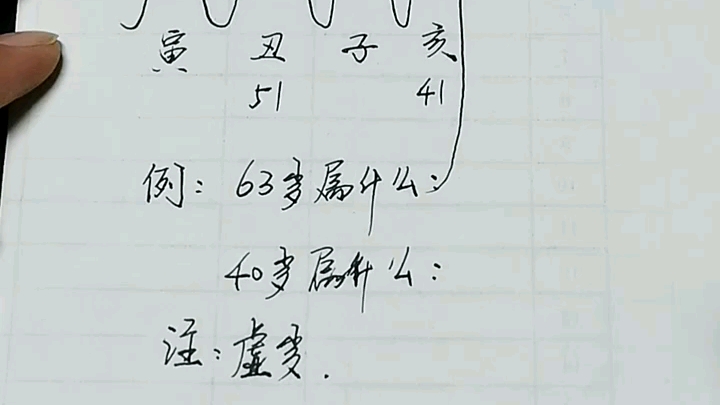 寅 丑 子 亥
51 41
例：63岁属什么：
40岁属什么：
注：虚岁.